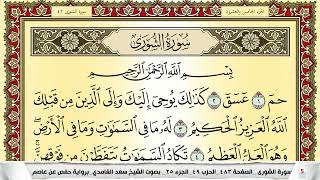 الجزء الخامس والعشرون
سورة الشورى ٤٢
سُورَةُ الشُّورَىٰ
بِسْمِ اللَّهِ الرَّحْمَٰنِ الرَّحِيمِ
حمٓ ١ عٓسٓقٓ ٢ كَذَٰلِكَ يُوحِىٓ إِلَيْكَ وَإِلَى الَّذِينَ مِن قَبْلِكَ
اللَّهُ الْعَزِيزُ الْحَكِيمُ ٣ لَهُۥ مَا فِى السَّمَٰوَٰتِ وَمَا فِى الْأَرْضِ ۖ
وَهُوَ الْعَلِىُّ الْعَظِيمُ ٤ تَكَادُ السَّمَٰوَٰتُ يَتَفَطَّرْنَ مِن فَوْقِهِنَّ ۚ
5 سورة الشورى الصفحة ٤٨٣ الحزب ٤٩ الجزء ٢٥ بصوت الشيخ سعد الغامدي برواية حفص عن عاصم